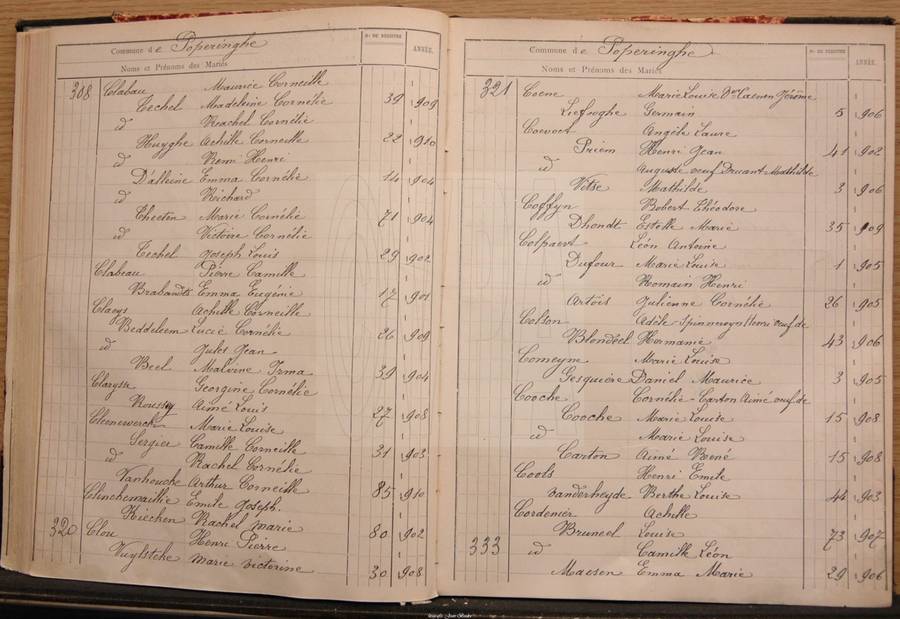 Commune de Poperinghe
Noms et Prénoms des Mariés
No DE REGISTRE
ANNÉE.
308 Clabau Maurice Corneille
Techel Madeleine Cornélie 39 909
id Rachel Cornélie
Huyghe Achille Corneille 22 910
id Remi Henri
D'alleine Emma Cornélie 14 904
id Richard
Theeten Marie Cornélie 71 904
id Victoire Cornélie
Techel Joseph Louis 29 902
Clabeau Pierre Camille
Brabandts Emma Eugénie 17 901
Claeys Achille Corneille
Beddeleem Lucie Cornélie 26 909
id Jules Jean
Beel Malvine Irma 39 904
Clarysse Georgine Cornélie
Roussey Aimé Louis 27 908
Clienewerck Marie Louise
Sergier Camille Corneille 31 903
id Rachel Cornélie
Vanhouche Arthur Corneille 85 910
Clinchemaillie Emile Joseph.
Riechen Rachel Marie 80 902
320 Clou Henri Pierre
Vuylsteke Marie Victorine 30 908
Commune de Poperinghe
Noms et Prénoms des Mariés
No DE REGISTRE
ANNÉE.
321 Coene Marie Louise Dre Caenen Jérôme
Liefooghe Germain 5 906
Coevoet Angèle Laure
Priem Henri Jean 41 902
id Auguste veuf Druant Mathilde
Vitse Mathilde 3 906
Coffyn Robert Théodore
Dhondt Estelle Marie 35 909
Colpaert Léon Antoine
Dufour Marie Louise 1 905
id Romain Henri
Artois Julienne Cornélie 26 905
Colson Adèle - Spinneroyn Henri veuf de
Blondeel Hermanie 43 906
Comeyne Marie Louise
Gesquière Daniel Maurice 3 905
Cooche Cornélie - Carton Aimé veuf de
Cooche Marie Louise 15 908
id Marie Louise
Carton Aimé René 15 908
Cools Henri Emile
Vanderheyde Berthe Louise 44 903
Cordenier Achille
Bruneel Louise 73 907
333 id Camille Léon
Maesen Emma Marie 29 906